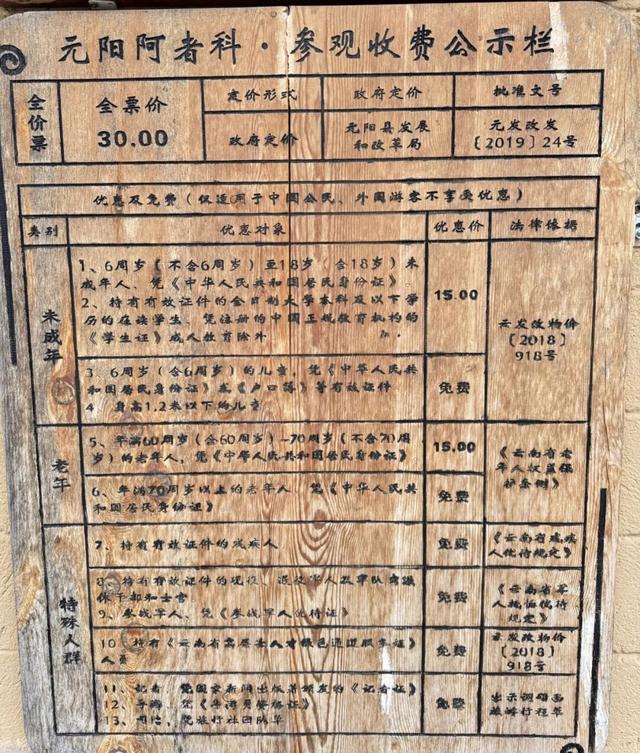 元阳阿者科·参观收费公示栏
全价票
全票价
30.00
定价形式
政府定价
批准文号
政府定价
元阳县发展
和改革局
元发改发
〔2019〕24号
优惠及免费（仅适用于中国公民、外国游客不享受优惠）
类别
优惠对象
优惠价
法律依据
未成年
1、6周岁（不含6周岁）至18岁（含18岁）未
成年人、凭《中华人民共和国居民身份证》
2、持有有效证件的全日制大学本科及以下学
历的在读学生、凭注册的中国正规教育机构的
《学生证》成人教育除外
15.00
云发改物价
〔2018〕
918号
3、6周岁（含6周岁）的儿童，凭《中华人民共
和国居民身份证》或《户口簿》等有效证件
4 身高1.2米以下的儿童
免费
老年
5、年满60周岁（含60周岁）-70周岁（不含70周
岁）的老年人，凭《中华人民共和国居民身份证》
15.00
《云南省老
年人权益保
护条例》
6、年满70周岁以上的老年人 凭《中华人民共
和国居民身份证》
免费
特殊人群
7、持有有效证件的残疾人
免费
《云南省残疾
人优待规定》
8、持有有效证件的现役、退役军人及军队离退
休干部和士官
9、参战军人、凭《参战军人优待证》
免费
《云南省军
人抚恤优待
规定》
10、持有《云南省高层次人才绿色通道服务证》
人员
免费
云发改物价
〔2018〕
918号
11、记者、凭国家新闻出版署颁发的《记者证》
12、导游、凭《导游资格证》
13、凭旅行社团队单
免费
出示
旅游行程单